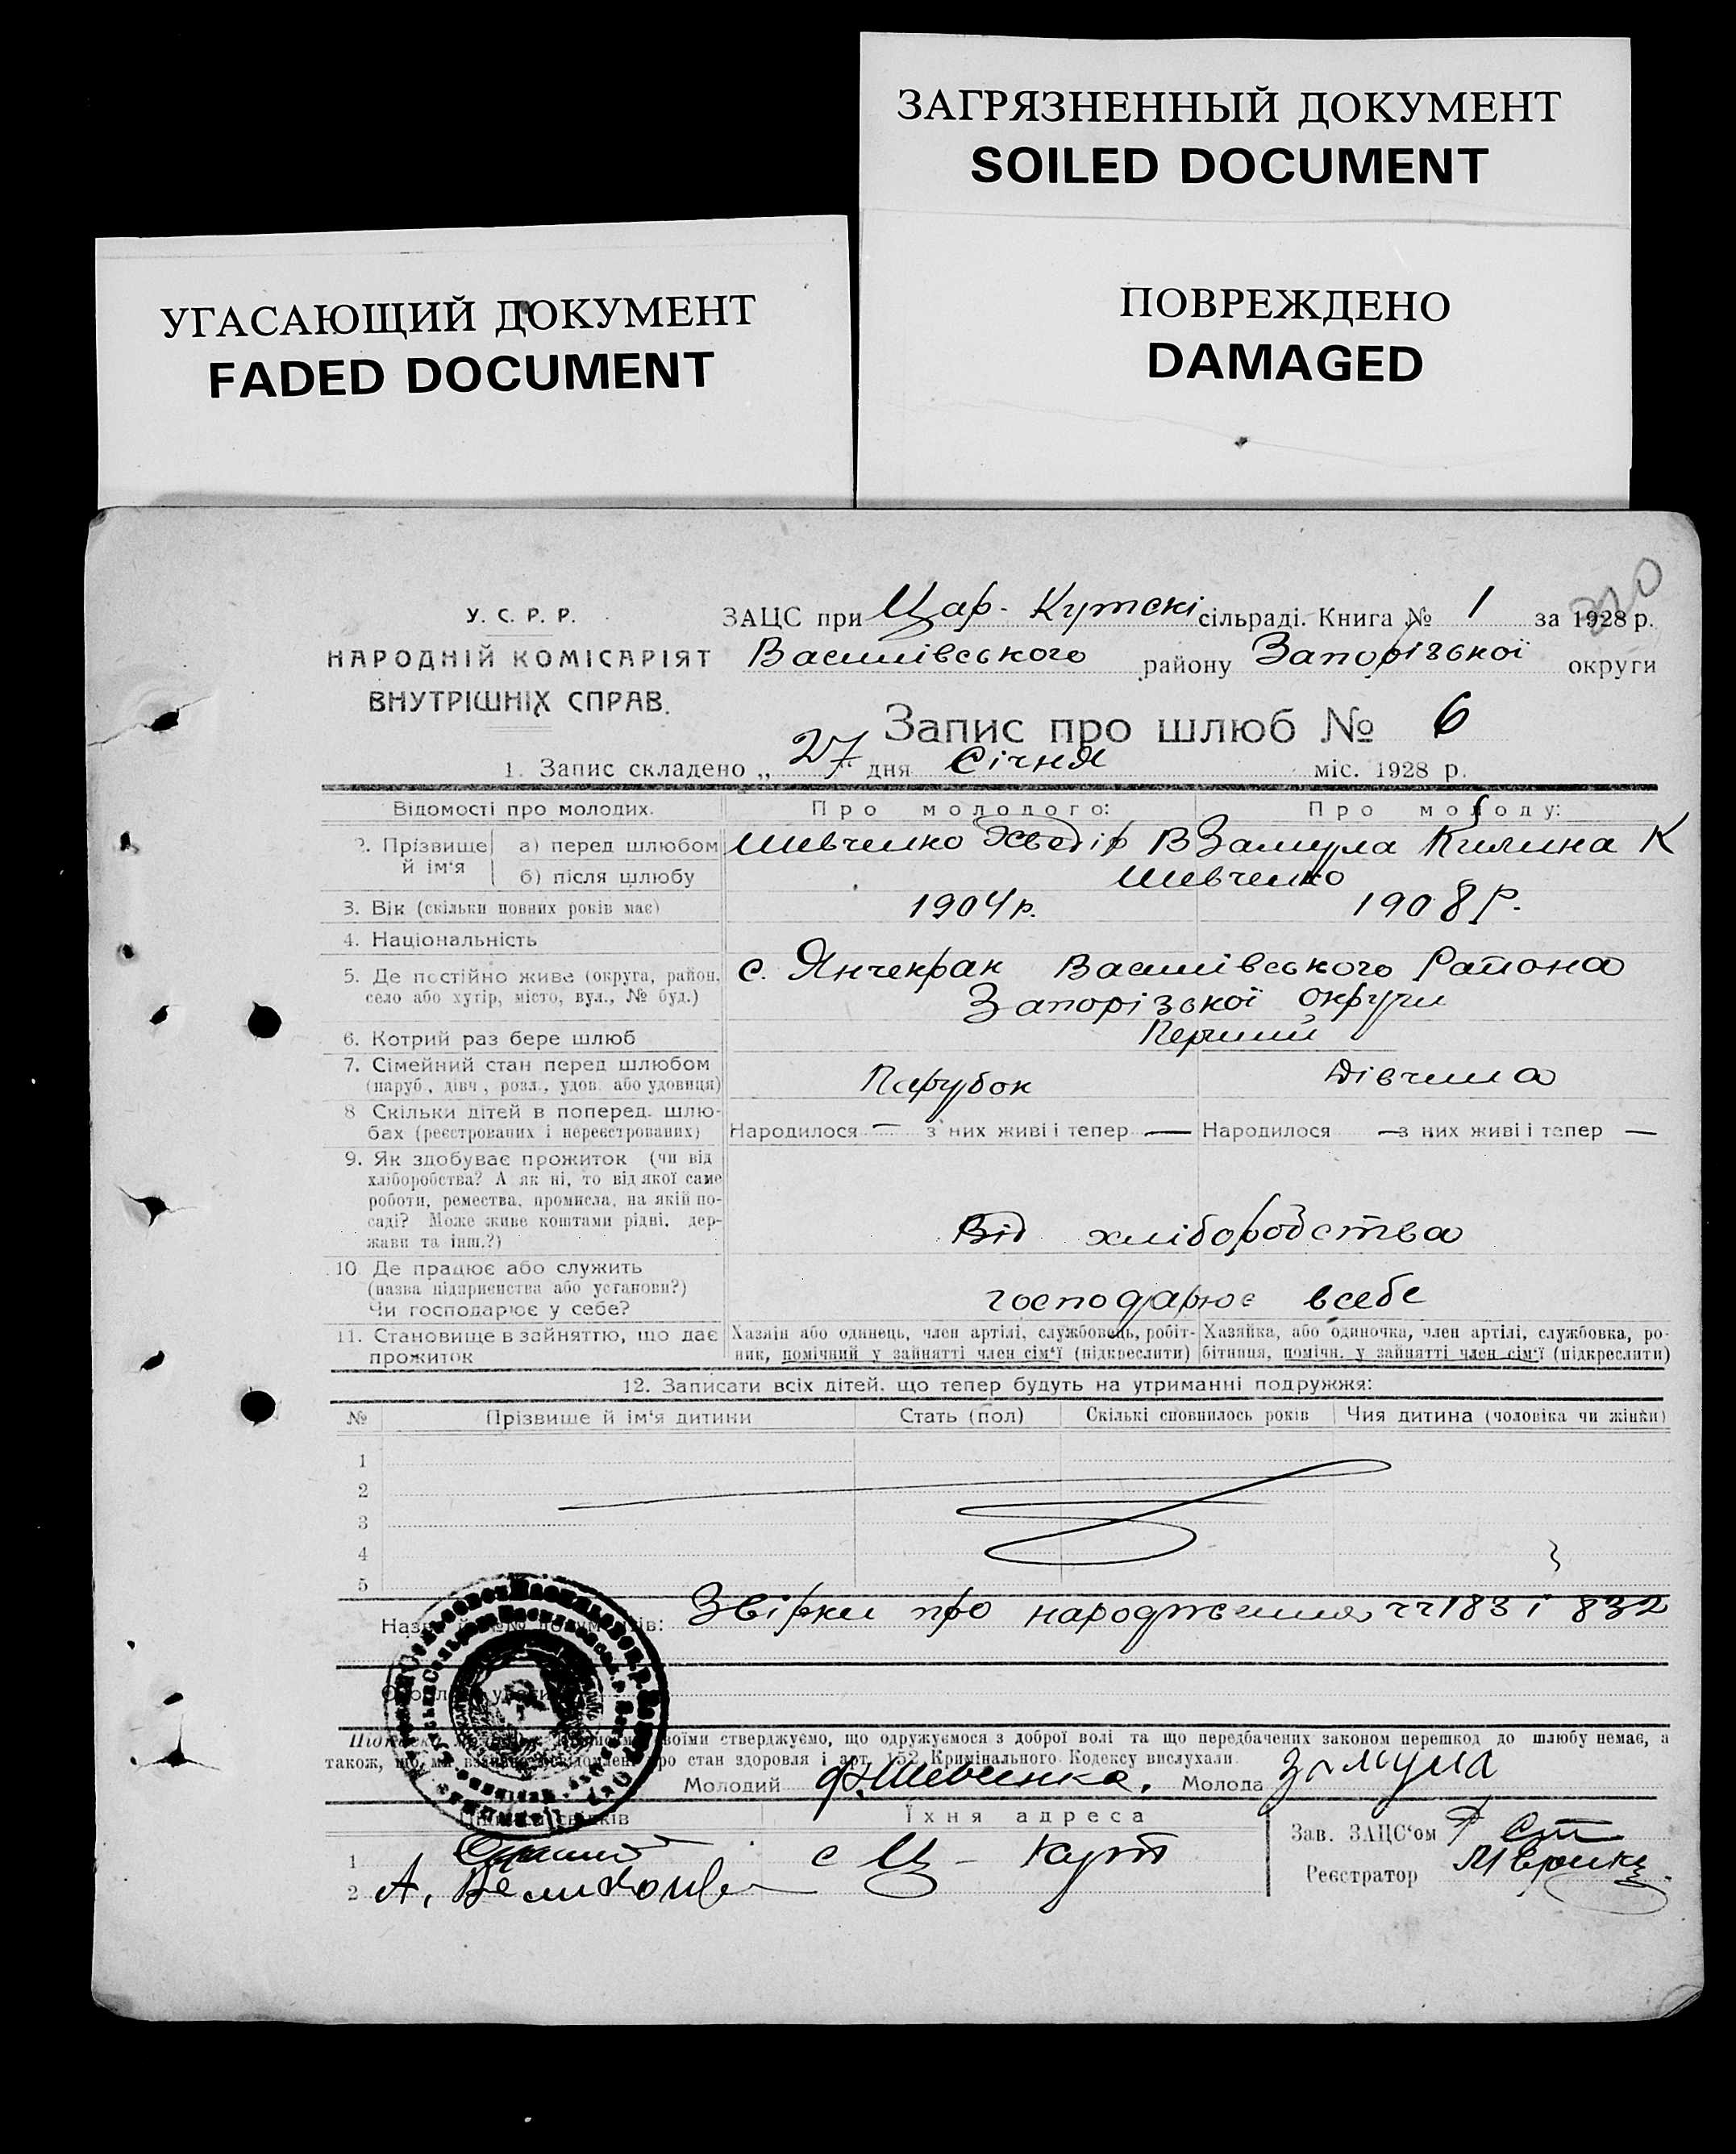 ЗАГРЯЗНЕННЫЙ ДОКУМЕНТ
SOILED DOCUMENT
УГАСАЮЩИЙ ДОКУМЕНТ
FADED DOCUMENT
ПОВРЕЖДЕНО
DAMAGED
210
У. С. Р. Р.
НАРОДНІЙ КОМІСАРІЯТ
ВНУТРІШНІХ СПРАВ.
ЗАЦС при Цар-Кутскі сільраді. Книга № 1 за 1928 р.
Василівського району Запорізької округи
Запис про шлюб № 6
1. Запис складено „ 27 дня Січня міс. 1928 р.
Відомості про молодих. Про молодого: Про молоду:
2. Прізвище й ім'я а) перед шлюбом Шевченко Хведір В Замула Килина К
б) після шлюбу Шевченко
3. Вік (скільки повних років має) 1904 р. 1908 р.
4. Національність
5. Де постійно живе (округа, район, село або хутір, місто, вул., № буд.) с. Янчекрак Василівського Района
Запорізької округи
6. Котрий раз бере шлюб Перший
7. Сімейний стан перед шлюбом (паруб., дівч., розл., удов. або удовиця) Парубок Дівчина
8 Скільки дітей в поперед. шлюбах (реєстрованих і нереєстрованих) Народилося — з них живі і тепер — Народилося — з них живі і тепер —
9. Як здобуває прожиток (чи від
хліборобства? А як ні, то від якої саме
роботи, ремества, промисла, на якій по-
саді? Може живе коштами рідні, дер-
жави та інш.?) Від хліборобства
10. Де працює або служить
(назва підприємства або установи?)
Чи господарює у себе? господарює всебе
11. Становище в зайняттю, що дає прожиток
Хазяїн або одинець, член артілі, службовець, робіт-
ник, помічний у зайнятті член сім'ї (підкреслити)
Хазяйка, або одиночка, член артілі, службовка, ро-
бітниця, помічн. у зайнятті член сім'ї (підкреслити)
12. Записати всіх дітей, що тепер будуть на утриманні подружжя:
№ Прізвище й ім'я дитини Стать (пол) Скількі сповнилось років Чия дитина (чоловіка чи жінки)
1
2
3
4
5
Звірки про народження чч 183 і 832
своїми стверджуємо, що одружуємося з доброї волі та що передбачених законом перешкод до шлюбу немає, а
також, що ми взаємно повідомлені про стан здоровля і арт. 152 Кримінального Кодексу вислухали.
Молодий Ф. Шевченко. Молода Замула
Їхня адреса
1 с Ц-Кут
2 А.
Зав. ЗАЦС'ом
Реєстратор